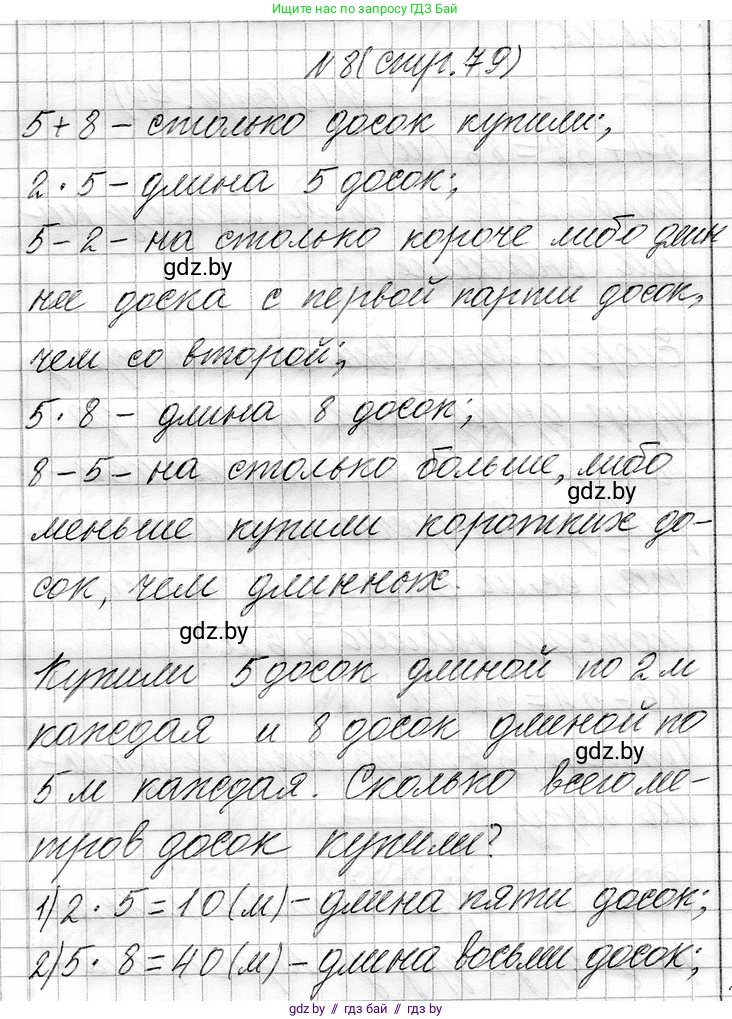 Ищите нас по запросу ГДЗ Бай
№8(стр.79)
5+8 – столько досок купили;
2·5 – длина 5 досок;
5-2 – на столько короче либо длин
gdz.by
нее доска с первой партии досок,
чем со второй;
5·8 – длина 8 досок;
8-5 – на столько больше, либо
gdz.by
меньше купили коротких до-
сок, чем длинных.
gdz.by
Купили 5 досок длиной по 2 м
каждая и 8 досок длиной по
gdz.by
5 м каждая. Сколько всего ме-
тров досок купили?
1) 2·5=10(м) – длина пяти досок;
2) 5·8=40(м) – длина восьми досок;
gdz.by // гдз бай // gdz.by